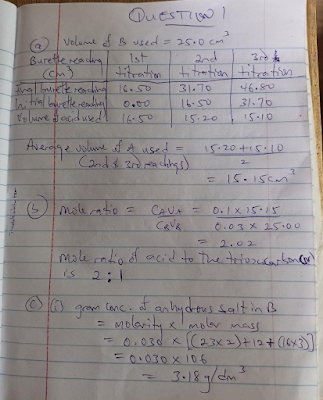 QUESTION 1
(a) Volume of B used = 25.0 cm³
Burette reading (cm³) | 1st titration | 2nd titration | 3rd titration
Final burette reading | 16.50 | 31.70 | 46.80
Initial burette reading | 0.00 | 16.50 | 31.70
Volume of acid used | 16.50 | 15.20 | 15.10
Average volume of A used = 15.20 + 15.10
(2nd & 3rd readings) 2
= 15.15cm³
(b) Mole ratio = CAVA = 0.1 x 15.15
CBVB 0.03 x 25.00
= 2.02
Mole ratio of acid to the trioxocarbonate(IV)
is 2:1
(c) (i) gram conc. of anhydrous salt in B
= molarity x molar mass
= 0.030 x [(23x2)+12+(16x3)]
= 0.030 x 106
= 3.18g/dm³